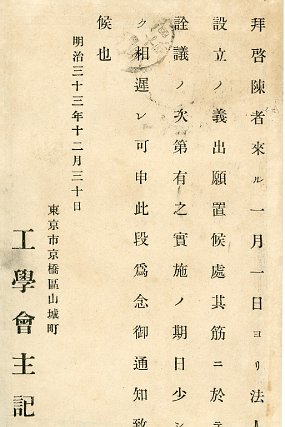 拜啓陳者來ル一月一日ヨリ法人
設立ノ義出願置候處其筋ニ於テ
詮議ノ次第有之實施ノ期日少シ
ク相遲レ可申此段爲念御通知致
候也
明治三十三年十二月三十日
東京市京橋區山城町
工學會主記